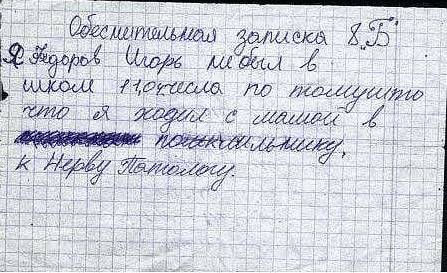 Обеснительная записка 8 „Б"
Я Федоров Игорь небыл в
школи 11,0 числа по томушто
что я ходил с мамой в
к Нерву Патологу.